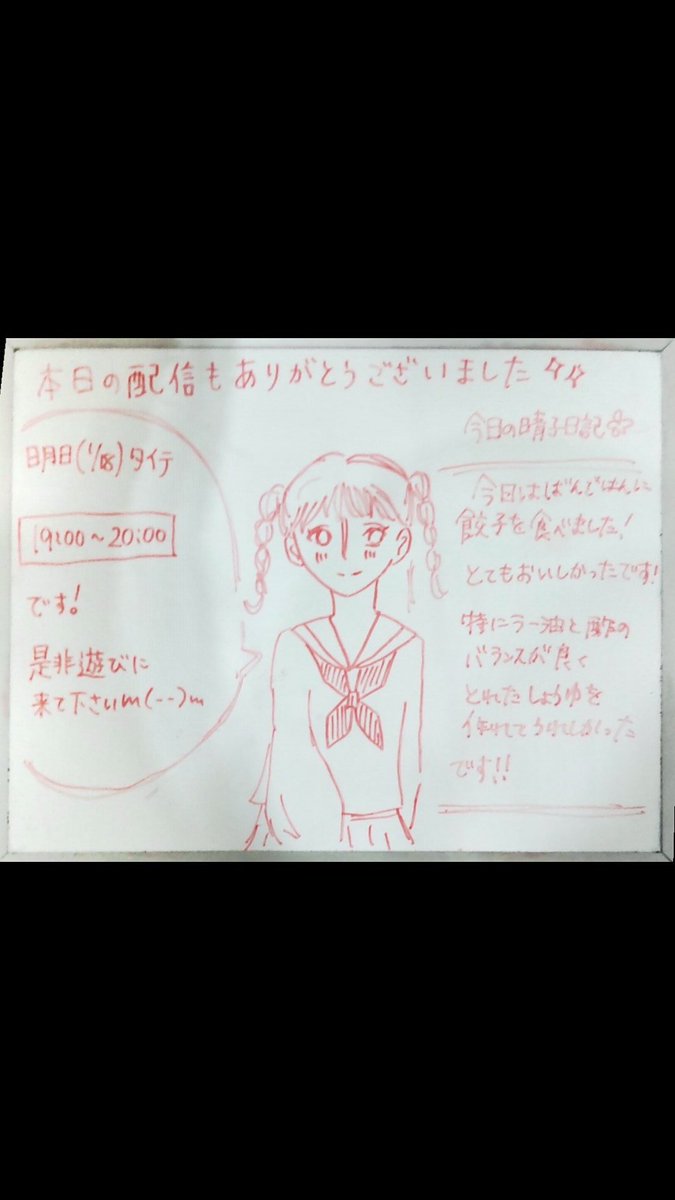 本日の配信もありがとうございました
明日(1/18)タイテ
19:00~20:00
です!
是非遊びに
来て下さいm(--)m
今日の晴子日記
今日はばんごはんに
餃子を食べました!
とてもおいしかったです!
特にラー油と酢の
バランスが良く
とれたしょうゆを
作れてうれしかった
です!!